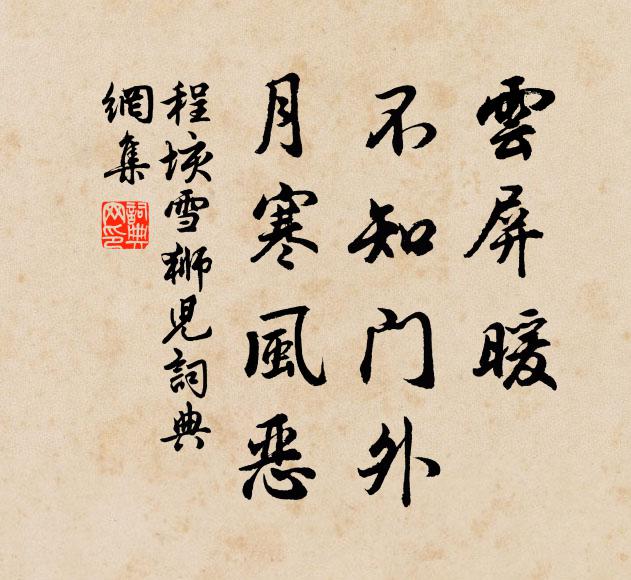 雲屏暖
不知門外
月寒風惡
程垓雪獅兒詞典
網集
詞典
網印